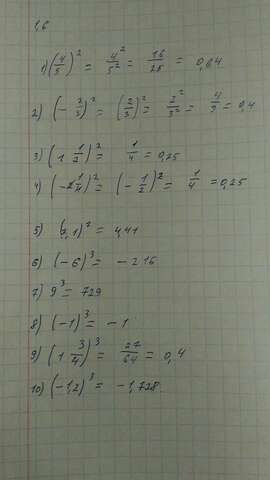 1,6
1) (4/5)² = 4²/5² = 16/25 = 0,64
2) (-2/3)² = (2/3)² = 2²/3² = 4/9 = 0,4
3) (1 1/2)² = 1/4 = 0,25
4) (-2 1/4)² = (-1/2)² = 1/4 = 0,25
5) (2,1)² = 4,41
6) (-6)³ = -216
7) 9³ = 729
8) (-1)³ = -1
9) (1 3/4)³ = 27/64 = 0,4
10) (-1,2)³ = -1,728